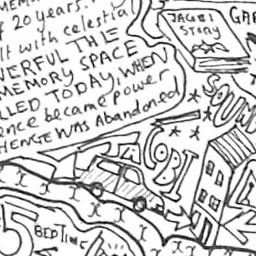 20 years.
lt with celestial
VERFUL THE
MEMORY SPACE
LLED TODAY, WHEN
ence became power
HENGE WAS Abandoned
JACOBI
STORY
GA
SOUN
JACOBI
5
BEDTIME